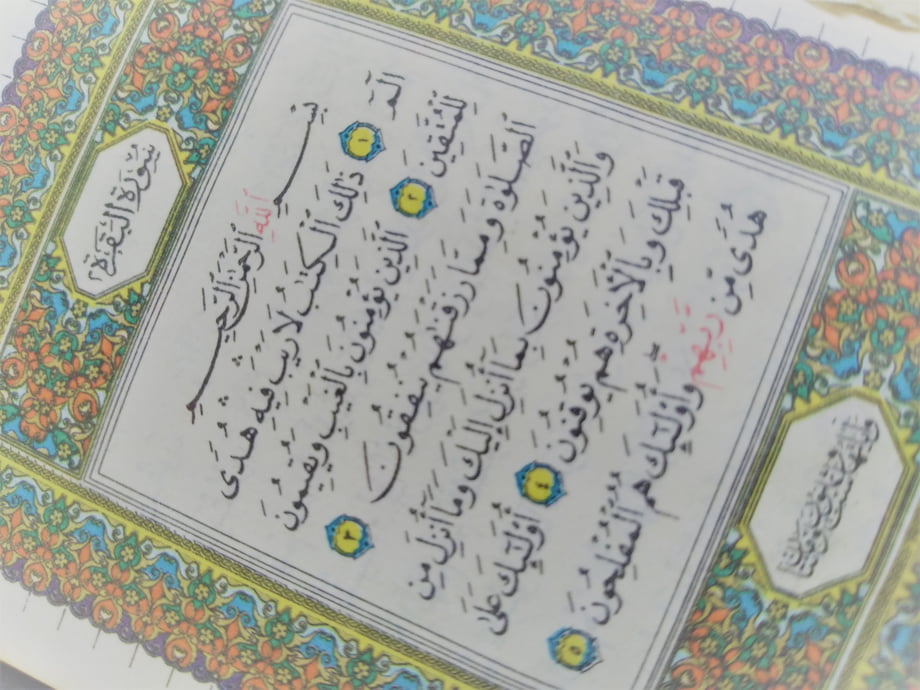 سُورَةُ البَقَرَةِ
بِسْمِ اللَّهِ الرَّحْمَٰنِ الرَّحِيمِ
الٓمٓ ١ ذَٰلِكَ الْكِتَٰبُ لَا رَيْبَ فِيهِ هُدًى
لِّلْمُتَّقِينَ ٢ الَّذِينَ يُؤْمِنُونَ بِالْغَيْبِ وَيُقِيمُونَ
الصَّلَوٰةَ وَمِمَّا رَزَقْنَٰهُمْ يُنفِقُونَ ٣
وَالَّذِينَ يُؤْمِنُونَ بِمَا أُنزِلَ إِلَيْكَ وَمَا أُنزِلَ مِن
قَبْلِكَ وَبِالْآخِرَةِ هُمْ يُوقِنُونَ ٤ أُوْلَٰٓئِكَ عَلَىٰ
هُدًى مِّن رَّبِّهِمْ وَأُوْلَٰٓئِكَ هُمُ الْمُفْلِحُونَ ٥